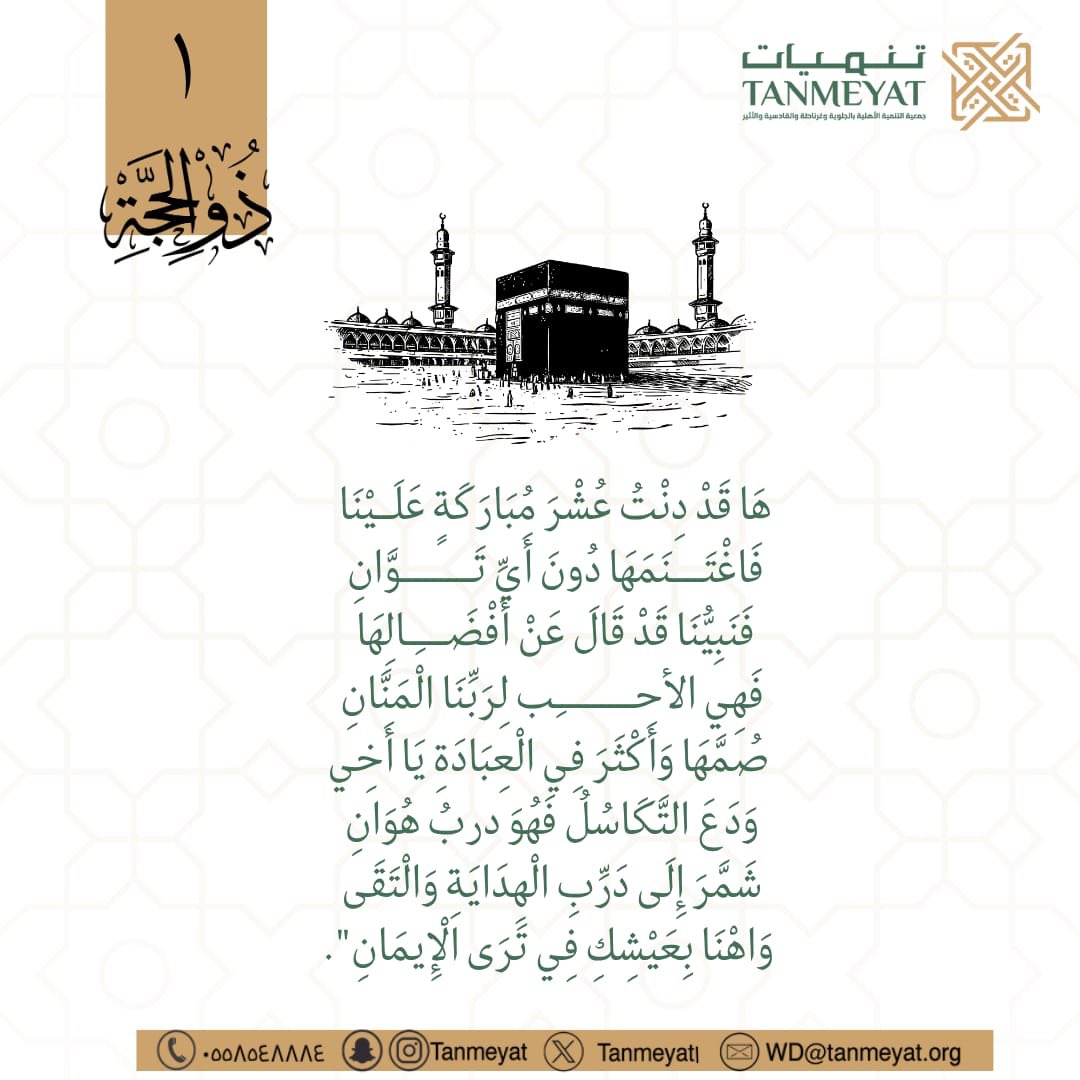 ١
ذُو الْحِجَّةِ
تنميات
TANMEYAT
جمعية التنمية الأهلية بالجلوية وغرناطة والقادسية والأثير
هَا قَدْ دِنْتُ عُشْرَ مُبَارَكَةٍ عَلَــيْنَا
فَاغْتَـــنَمَهَا دُونَ أَيِّ تَـــــــوَّانِ
فَنَبِيُّنَا قَدْ قَالَ عَنْ أَفْضَـــالِهَا
فَهِي الأحـــــــِب لِرَبِّنَا الْمَنَّانِ
صُمَّهَا وَأَكْثَرَ فِي الْعِبَادَةِ يَا أَخِي
وَدَعَ التَّكَاسُلُ فَهُوَ دربُ هُوَانِ
شَمَّرَ إِلَى دَرِّبِ الْهِدَايَةِ وَالْتَقَى
وَاهْنَا بِعَيْشِكِ فِي تَرَى الْإِيمَانِ".
٠٥٥٨٥٤٨٨٨٤ Tanmeyat Tanmeyat١ WD@tanmeyat.org